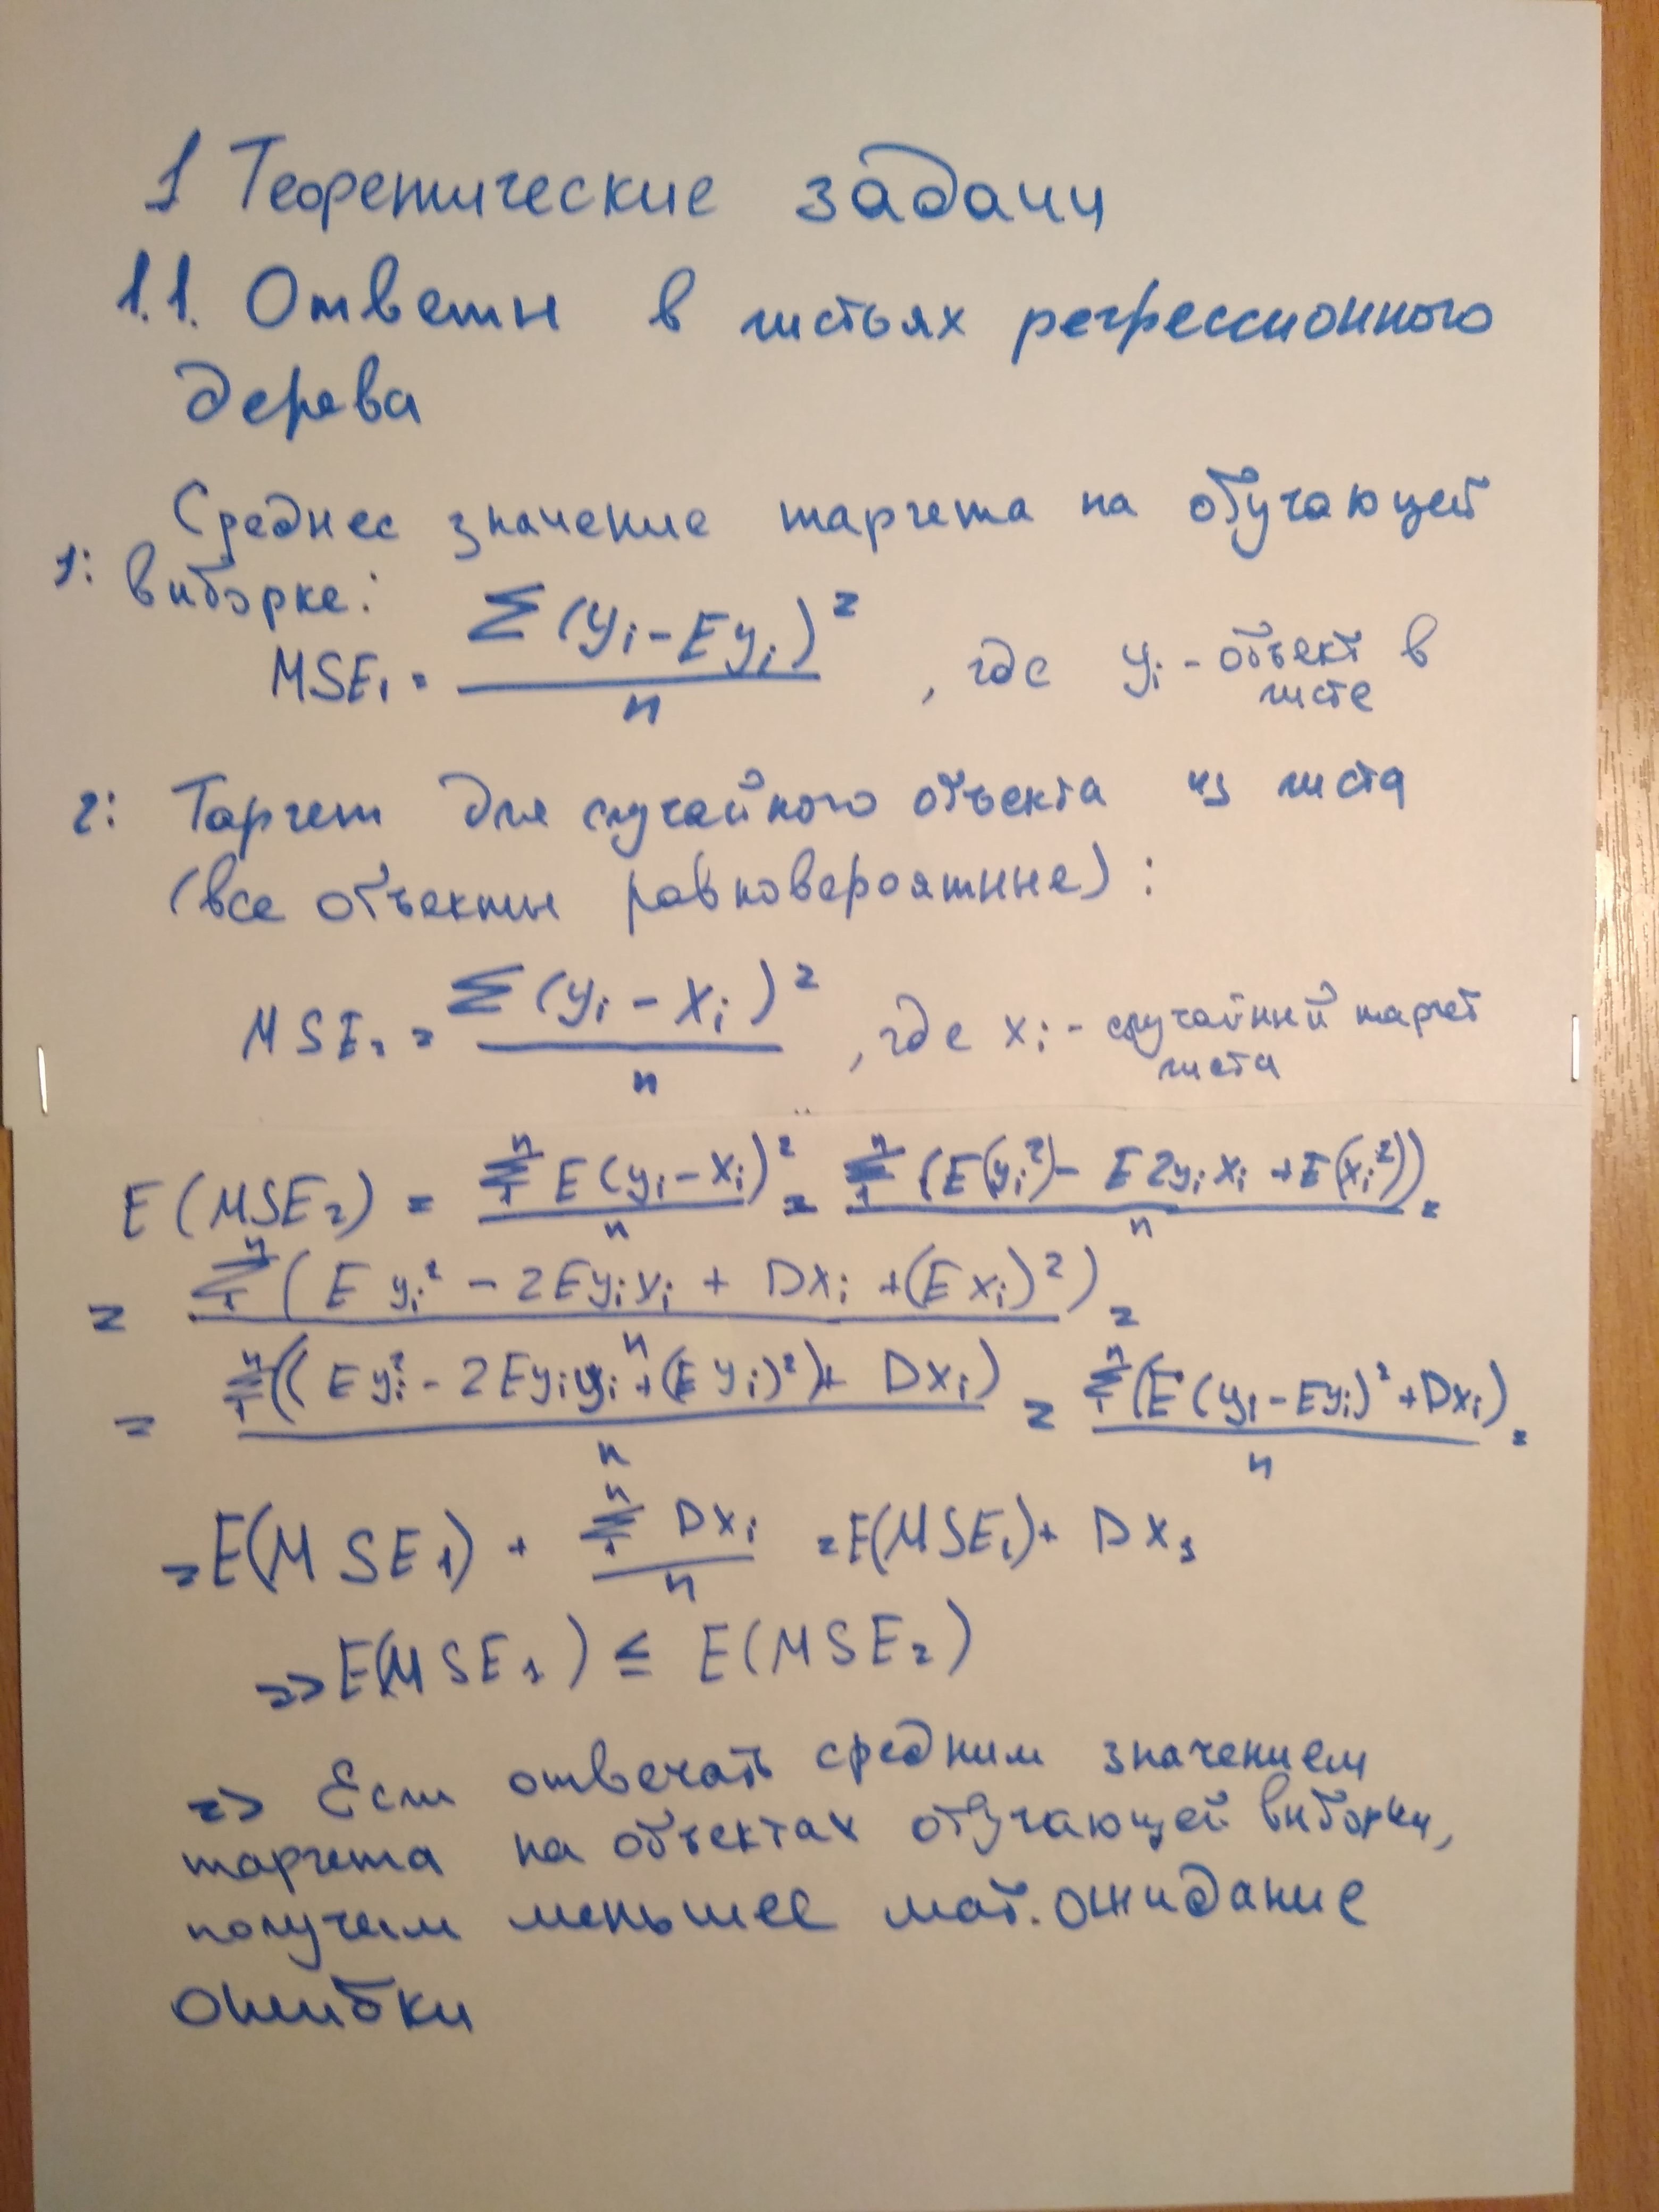 1 Теоретические задачи
1.1. Ответы в листьях регрессионного
дерева
Среднее значение таргета на обучающей
1: выборке:
MSE₁ = Σ(yᵢ - Eyᵢ)² / n , где yᵢ - объект в листе
2: Таргет для случайного объекта из листа
(все объекты равновероятные) :
MSE₂ = Σ(yᵢ - xᵢ)² / n , где xᵢ - случайный таргет листа
E(MSE₂) = Σ₁ⁿ E(yᵢ - xᵢ)² / n = Σ₁ⁿ (E(yᵢ²) - E2yᵢxᵢ + E(xᵢ²)) / n =
= Σ₁ⁿ (E yᵢ² - 2Eyᵢxᵢ + Dxᵢ + (E xᵢ)²) / n =
= Σ₁ⁿ ((Eyᵢ² - 2Eyᵢyᵢ + (Eyᵢ)²) + Dxᵢ) / n = Σ₁ⁿ (E(yᵢ - Eyᵢ)² + Dxᵢ) / n =
= E(MSE₁) + Σ₁ⁿ Dxᵢ / n = E(MSE₁) + Dx₁
=> E(MSE₁) ≤ E(MSE₂)
=> Если отвечать средним значением
таргета на объектах обучающей выборки,
получим меньшее мат. ожидание
ошибки